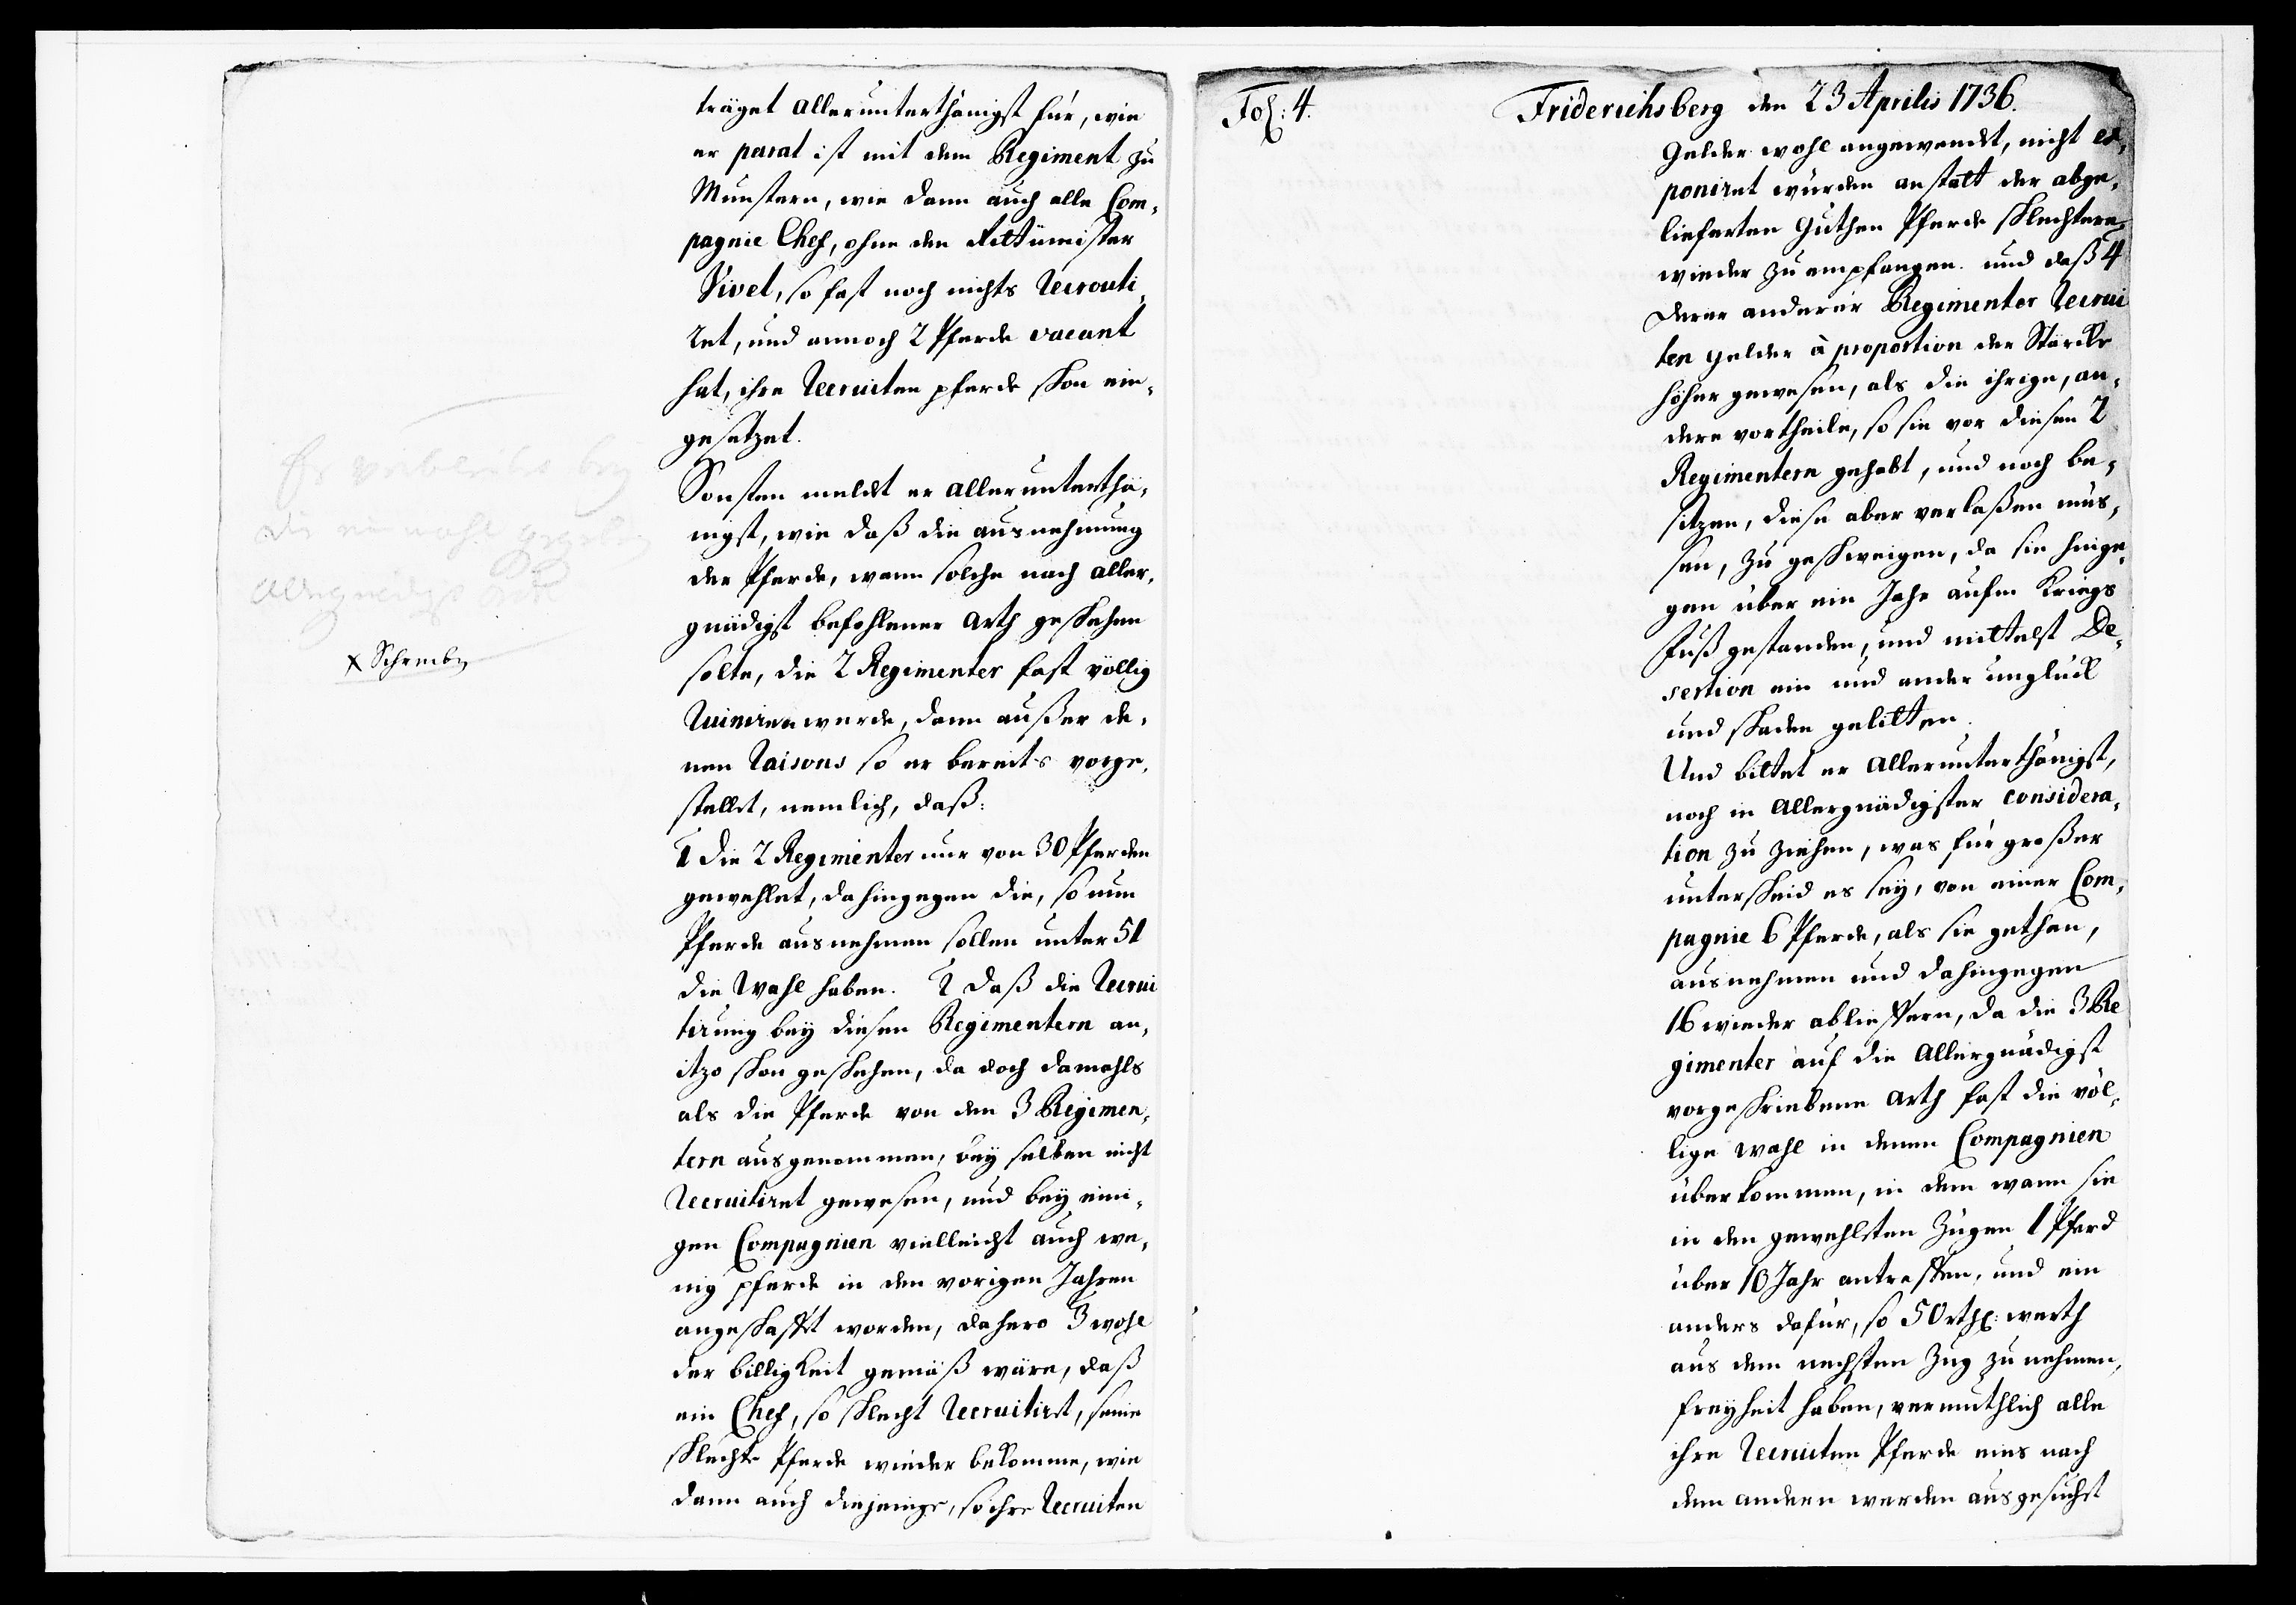 träget allerunterthänigst für, wie
er parat ist mit dem Regiment zu
Munstern, wie dann auch alle Com,
pagnie Chef, ohne den Rittmeister
Vivet, so fast noch nichts Recrouti,
ret, und annoch 2 Pferde vacant
hat, ihre Recruiten pferde schon ein,
gesetzet.
Sonsten meldet er allerunterthä,
nigst, wie daß die ausnehmung
der Pferde, wann solche nach aller,
gnädigst befohlener Arth geschehen
solte, die 2 Regimenter fast völlig
Ruiniren wurde, dann außer de,
nen Raisons so er bereits vorge,
stellet, nemlich, daß:
1 die 2 Regimenter nur von 30 Pferden
gewehlet, dahingegen die, so nun
Pferde ausnehmen sollen unter 51
die Wahl haben. 2 daß die Recrui
tirung bey diesen Regimentern an,
itzo schon geschehen, da doch damahls
als die Pferde von den 3 Regimen,
tern ausgenommen, bey selben nicht
Recruitiret gewesen, und bey eini,
gen Compagnien vielleicht auch we,
nig pferde in den vorigen Jahren
angeschafft worden, dahero 3 wohl
der billigkeit gemäß wäre, daß
ein Chef, so schlecht Recruitiret, seine
schlechte Pferde wieder bekomme, wie
dann auch diejenige, so ihre Recruiten
Es verbleibet bey
die einmahl gegeben
Allergnedigst
x Schreiben
Fol: 4.
Friderichsberg den 23 Aprilis 1736.
Gelder wohl angewendet, nicht ex,
poniret würden anstatt der abge,
lieferten Guthen Pferde schlechtere
wieder zu empfangen. und daß 4
derer anderer Regimenter Recrui
ten gelder à proportion der Stärcke
höher gewesen, als die ihrige, an,
dere vortheile, so sie vor diesen 2
Regimentern gehabt, und noch be,
sitzen, diese aber verlaßen mus,
sen, zu geschweigen, da sie hinge,
gen über ein Jahr aufm Kriegs
Fuß gestanden, und mittelst De,
sertion ein und ander unglück
und schaden gelitten.
Und bittet er Allerunterthänigst,
noch in Allergnädigster considera,
tion zu ziehen, was für großer
unterscheid es sey, von einer Com,
pagnie 6 Pferde, als sie gethan,
ausnehmen und dahingegen
16 wieder abliefftern, da die 3 Re
gimenter auf die Allergnädigst
vorgeschriebene Arth fast die völ,
lige wahl in denen Compagnien
überkommen, in dem wann sie
in den gewehlten Zügen 1 Pferd
über 10 Jahr antreffen, und ein
anders dafür, so 50 rthl: werth
aus dem nechsten Zug zu nehmen,
freyheit haben, vermuthlich alle
ihre Recruiten Pferde eins nach
dem andern werden ausgesucht